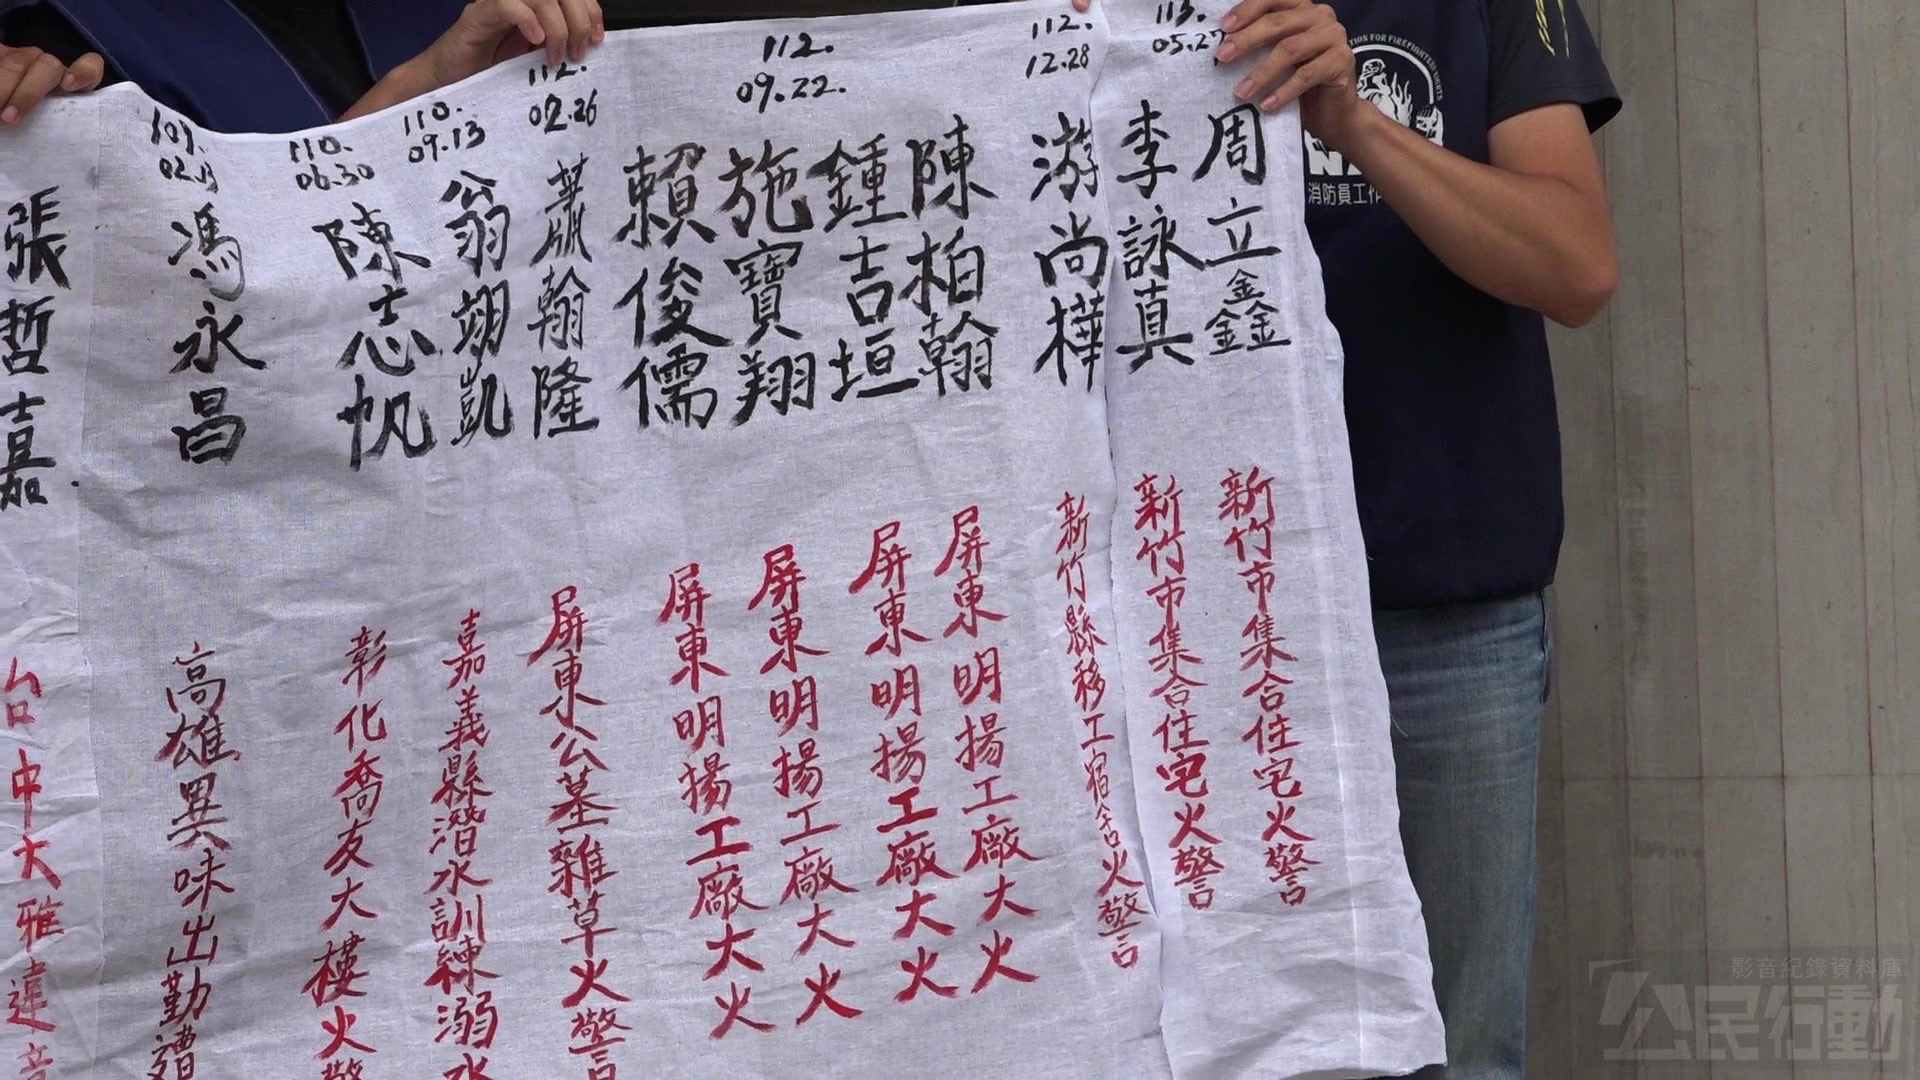 113.
05.27
周立鑫
新竹市集合住宅火警
李詠真
新竹市集合住宅火警
112.
12.28
游尚樺
新竹縣移工宿舍火警
112.
09.22.
陳柏翰
屏東明揚工廠大火
鍾吉垣
屏東明揚工廠大火
施寶翔
屏東明揚工廠大火
賴俊儒
屏東明揚工廠大火
112.
02.26
蕭翰隆
屏東公墓雜草火警
110.
09.13
翁翊凱
嘉義縣潛水訓練溺水
110.
06.30
陳志帆
彰化喬友大樓火警
馮永昌
高雄異味出勤遭
張哲嘉
台中大雅違章
TION FOR FIREFIGHTERS' RIGHTS
消防員工作
影音紀錄資料庫
公民行動